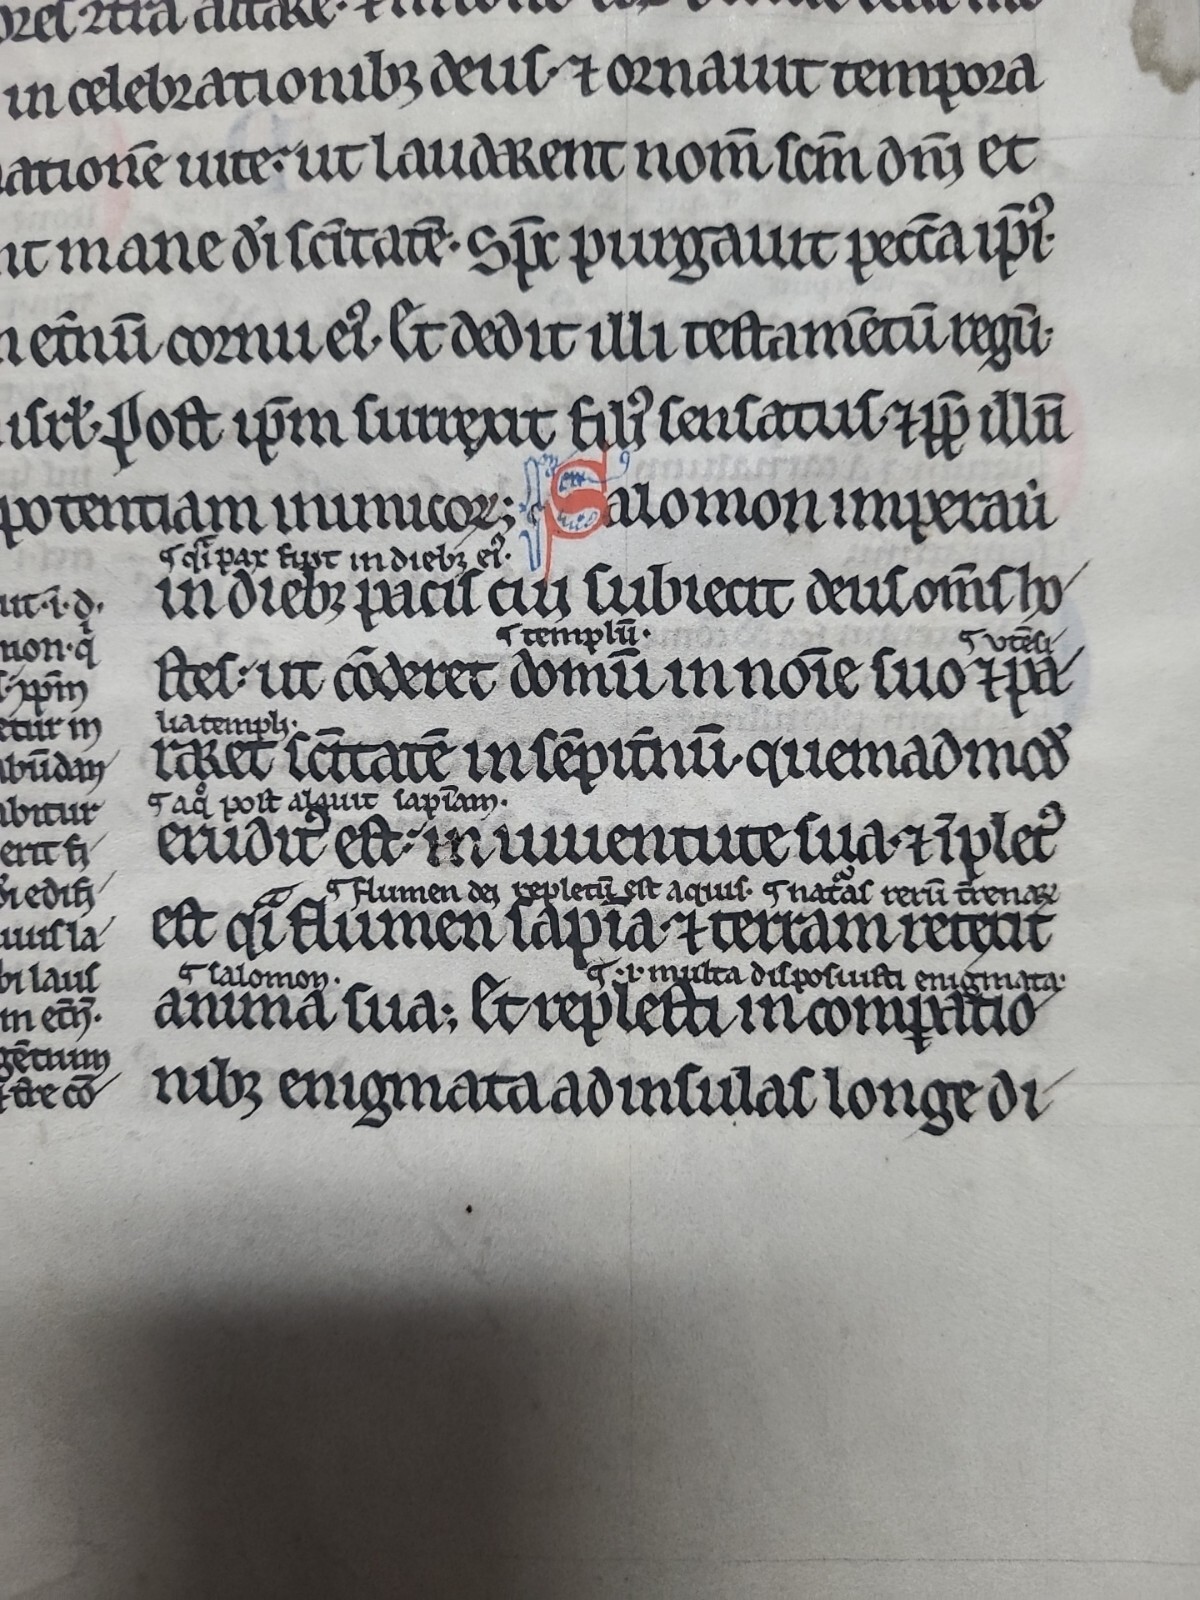 in celebrationibꝫ deus· ⁊ ornauit tempora
ationē uite· ut laudarent nom̄ scm̄ dnī et
nt mane di sc̄itatē· Xp̄c purgauit pecc̄a ip̄i᷒·
et̄nū cornu ei᷒· Et dedit illi testam̄etū regū·
isrl̓· Post ip̄m surrexit fili᷒ sensatus· ⁊ ꝓp̄ illū
potentiam inimicoꝝ; Salomon imperauı̇
¶ qı̄ pax fuit in diebꝫ ei᷒·
in diebꝫ pacis cui subiecit deus om̄s ho
¶ templū· ¶ vtēsi
stes· ut cōderet domū in noīe suo ⁊ pa
lia templi·
raret sc̄itatē in sēpit̄nū· quemadmod̓
¶ a q̊ postulauit sapīam·
erudit᷒ est· in iuuentute sua· ⁊ īplet᷒
¶ flumen dei repletū est aquis· ¶ nat̄as rerū t̄renaꝝ
est qī flumen sapīa· ⁊ terram retexit
¶ salomon· ¶ ·i· multa disposuisti enigmata·
anima sua; Et replesti in comꝑatio
nibꝫ enigmata ad insulas longe di
ut·i·d·
non·q̄
etur in
abūdan
abitur
erit fi
di edifi
uius la
bi laus
m ecc̄·
gētium